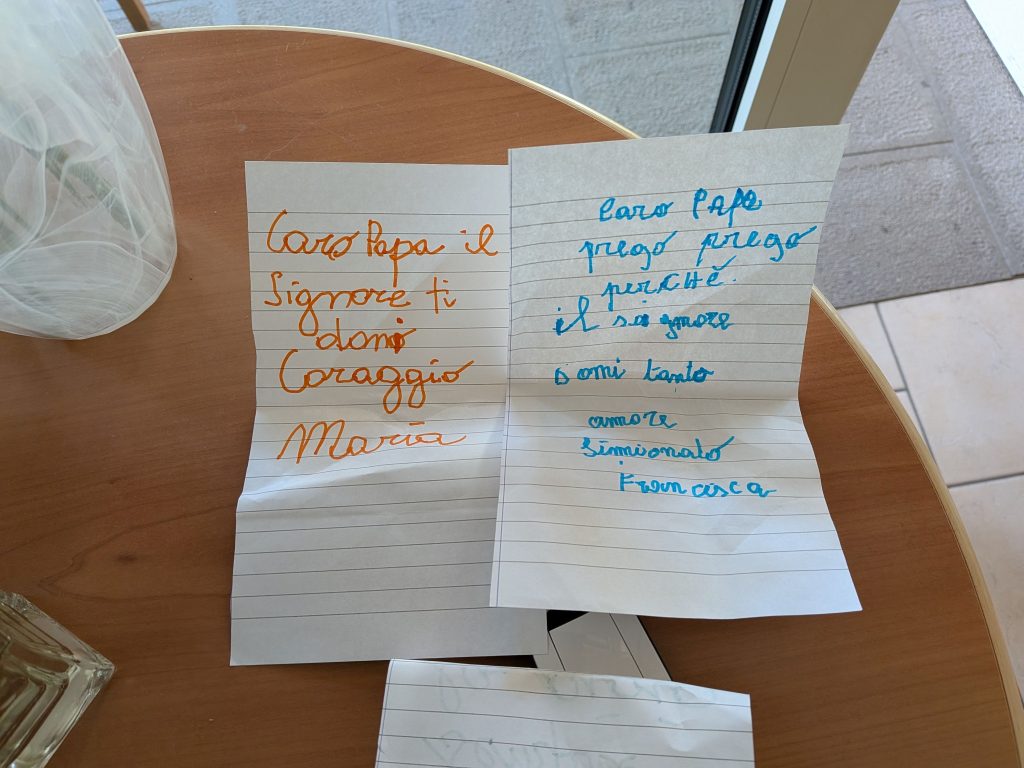 Caro Papa il
Signore ti
doni
Coraggio
Maria
Caro Papa
prego prego
perCHé.
il si gnore
domi tanto
amore
Simionato
Francisca